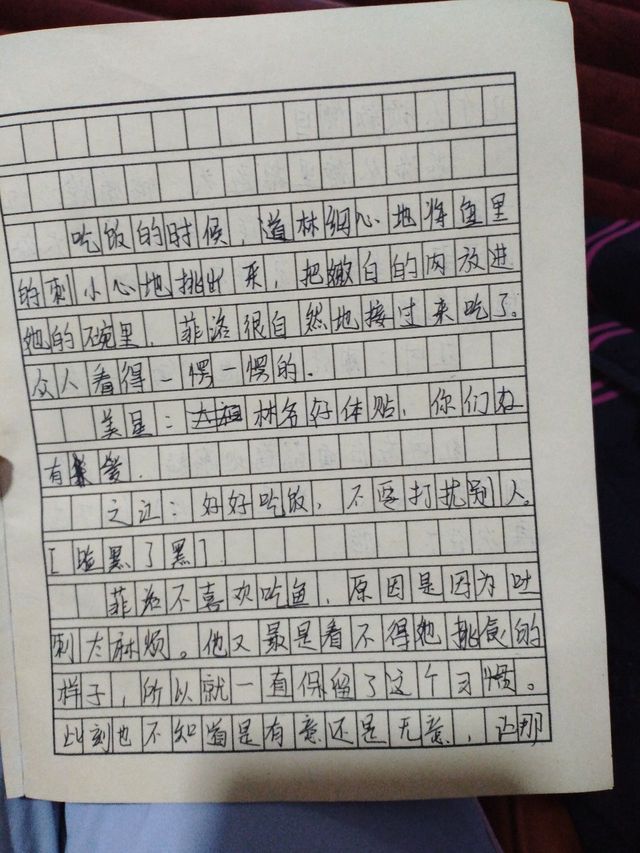 吃饭的时候，道林细心地将鱼里
的刺小心地挑出来，把嫩白的肉放进
她的碗里，菲洛很自然地接过来吃了。
众人看得一愣一愣的．
美星：林名好体贴，你们好
有爱．
之江：好好吃饭，不要打扰别人。
[脸黑了黑]
菲洛不喜欢吃鱼，原因是因为吐
刺太麻烦。他又最是看不得她挑食的
样子，所以就一直保留了这个习惯。
此刻也不知道是有意还是无意，让那